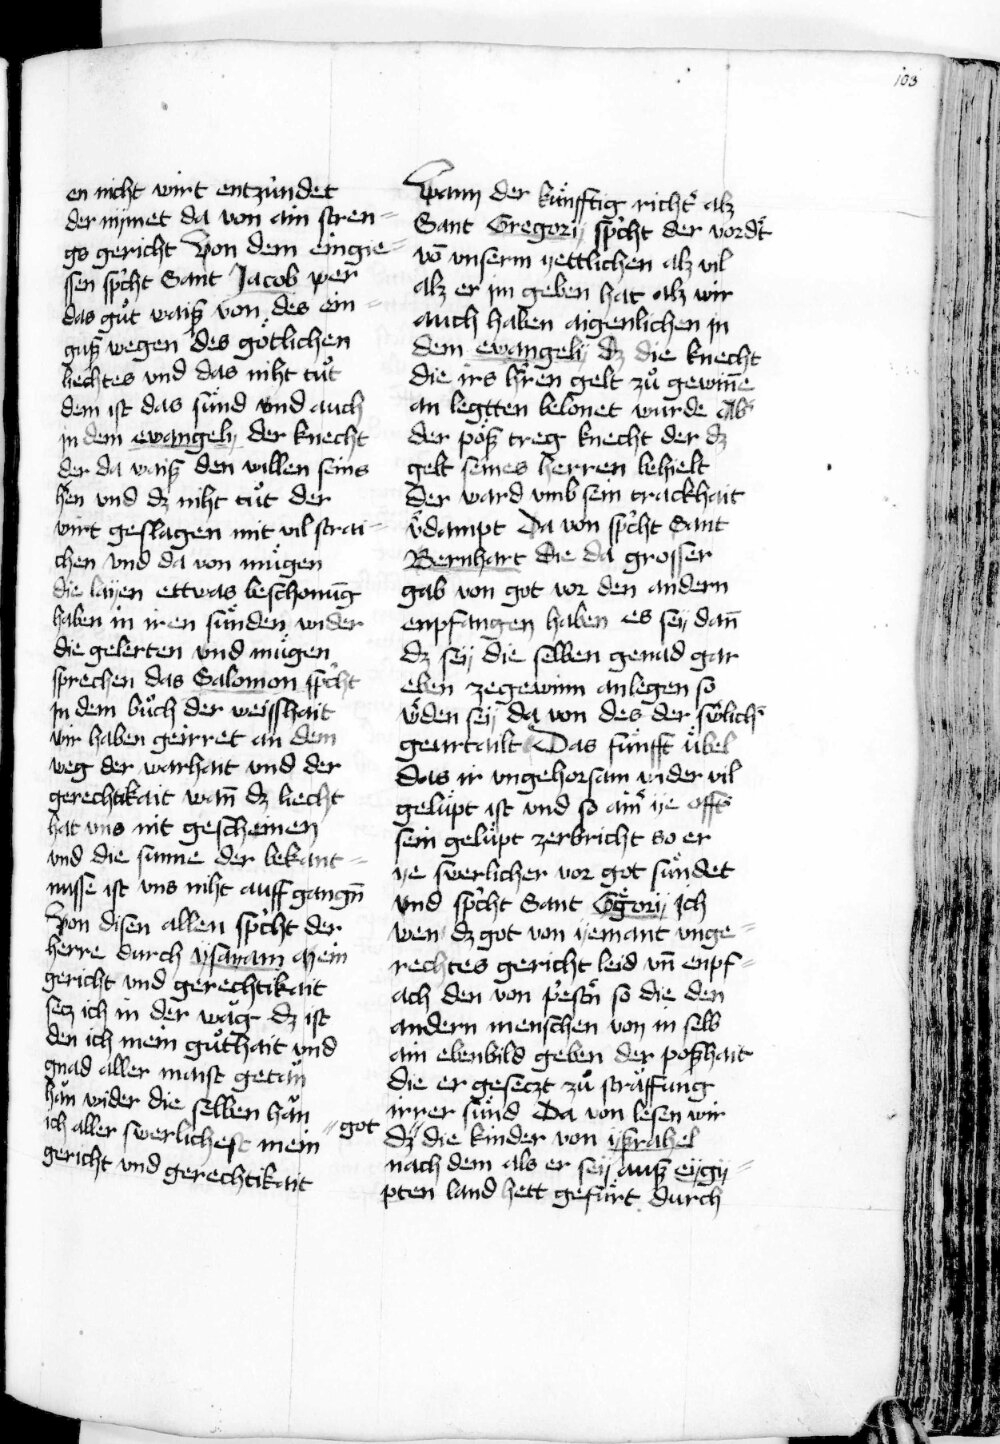 103
en nicht wirt entzündet
der nymet da von ain stren=
gs gericht Von dem eingie=
ssen spͥcht Sant Jacob wer
das gůt waiß von des ein=
guß wegen des götlichen
liechtes vnd das niht tůt
dem ist das sünd vnd auch
in dem ewangelÿ der knecht
der da waiß den willen seins
hͤren vnd dz niht tůt der
wirt geslagen mit vil strai=
chen vnd da von mügen
die layen ettwas beschonūg
haben in iren sünden wider
die gelerten vnd mügen
sprechen das Salomon spͥcht
in dem bůch der weisshait
wir haben geirret an dem
weg der warhait vnd der
gerechtikait wan̄ dz liecht
hat vns nit gescheinen
vnd die sunne der bekant=
nusse ist vns niht auff gangn̄
Von disen allen spͥcht der
herre durch ysayam Mein
gericht vnd gerechtikait
secz ich in der wåg dz ist
den ich mein gůthait vnd
gnad aller maist getån
hån wider die selben hån
ich aller swerlichest mein =got
gericht vnd gerechtikait
Wann der künfftig richtͤ alz
Sant Gregorij spͥcht der vordͤt
vō vnserm yettlichen alz vil
alz er im geben hat alz wir
auch haben aigenlichen in
dem ewangelÿ dz die knecht
die irs hͤren gelt zů gewin̄e
an legtten belonet wurde Abͤ
der pöß treg knecht der dz
gelt seines herren behielt
der ward vmb sein trackhait
vͤdampt Da von spͥcht Sant
Bernhart die da grosser
gab von got vor den andern
enpfangen haben es seÿ dan̄
dz seÿ die selben genad gar
eben zegewinn anlegen so
wͤden seÿ da von des der swͤlichͤ
geurtailt Das fünfft übel
das ir vngehorsam wider vil
gelüpt ist vnd so ainͤ ye offtͤ
sein gelüpt zerbricht so er
ye swerlicher vor got sündet
vnd spͥcht Sant Gͤgorij ich
wen dz got von yemant vnge=
rechtes gericht leid vn̄ enpf=
ach den von pͥestn̄ so die den
andern menschen von in selb
ain ebenbild geben der poßhait
die er geseczt zů sträffung
irrer sünd Da von lesen wir
dz die kinder von ysrahel
nach dem als er seÿ auß eÿgÿ=
pten land hett gefürt durch